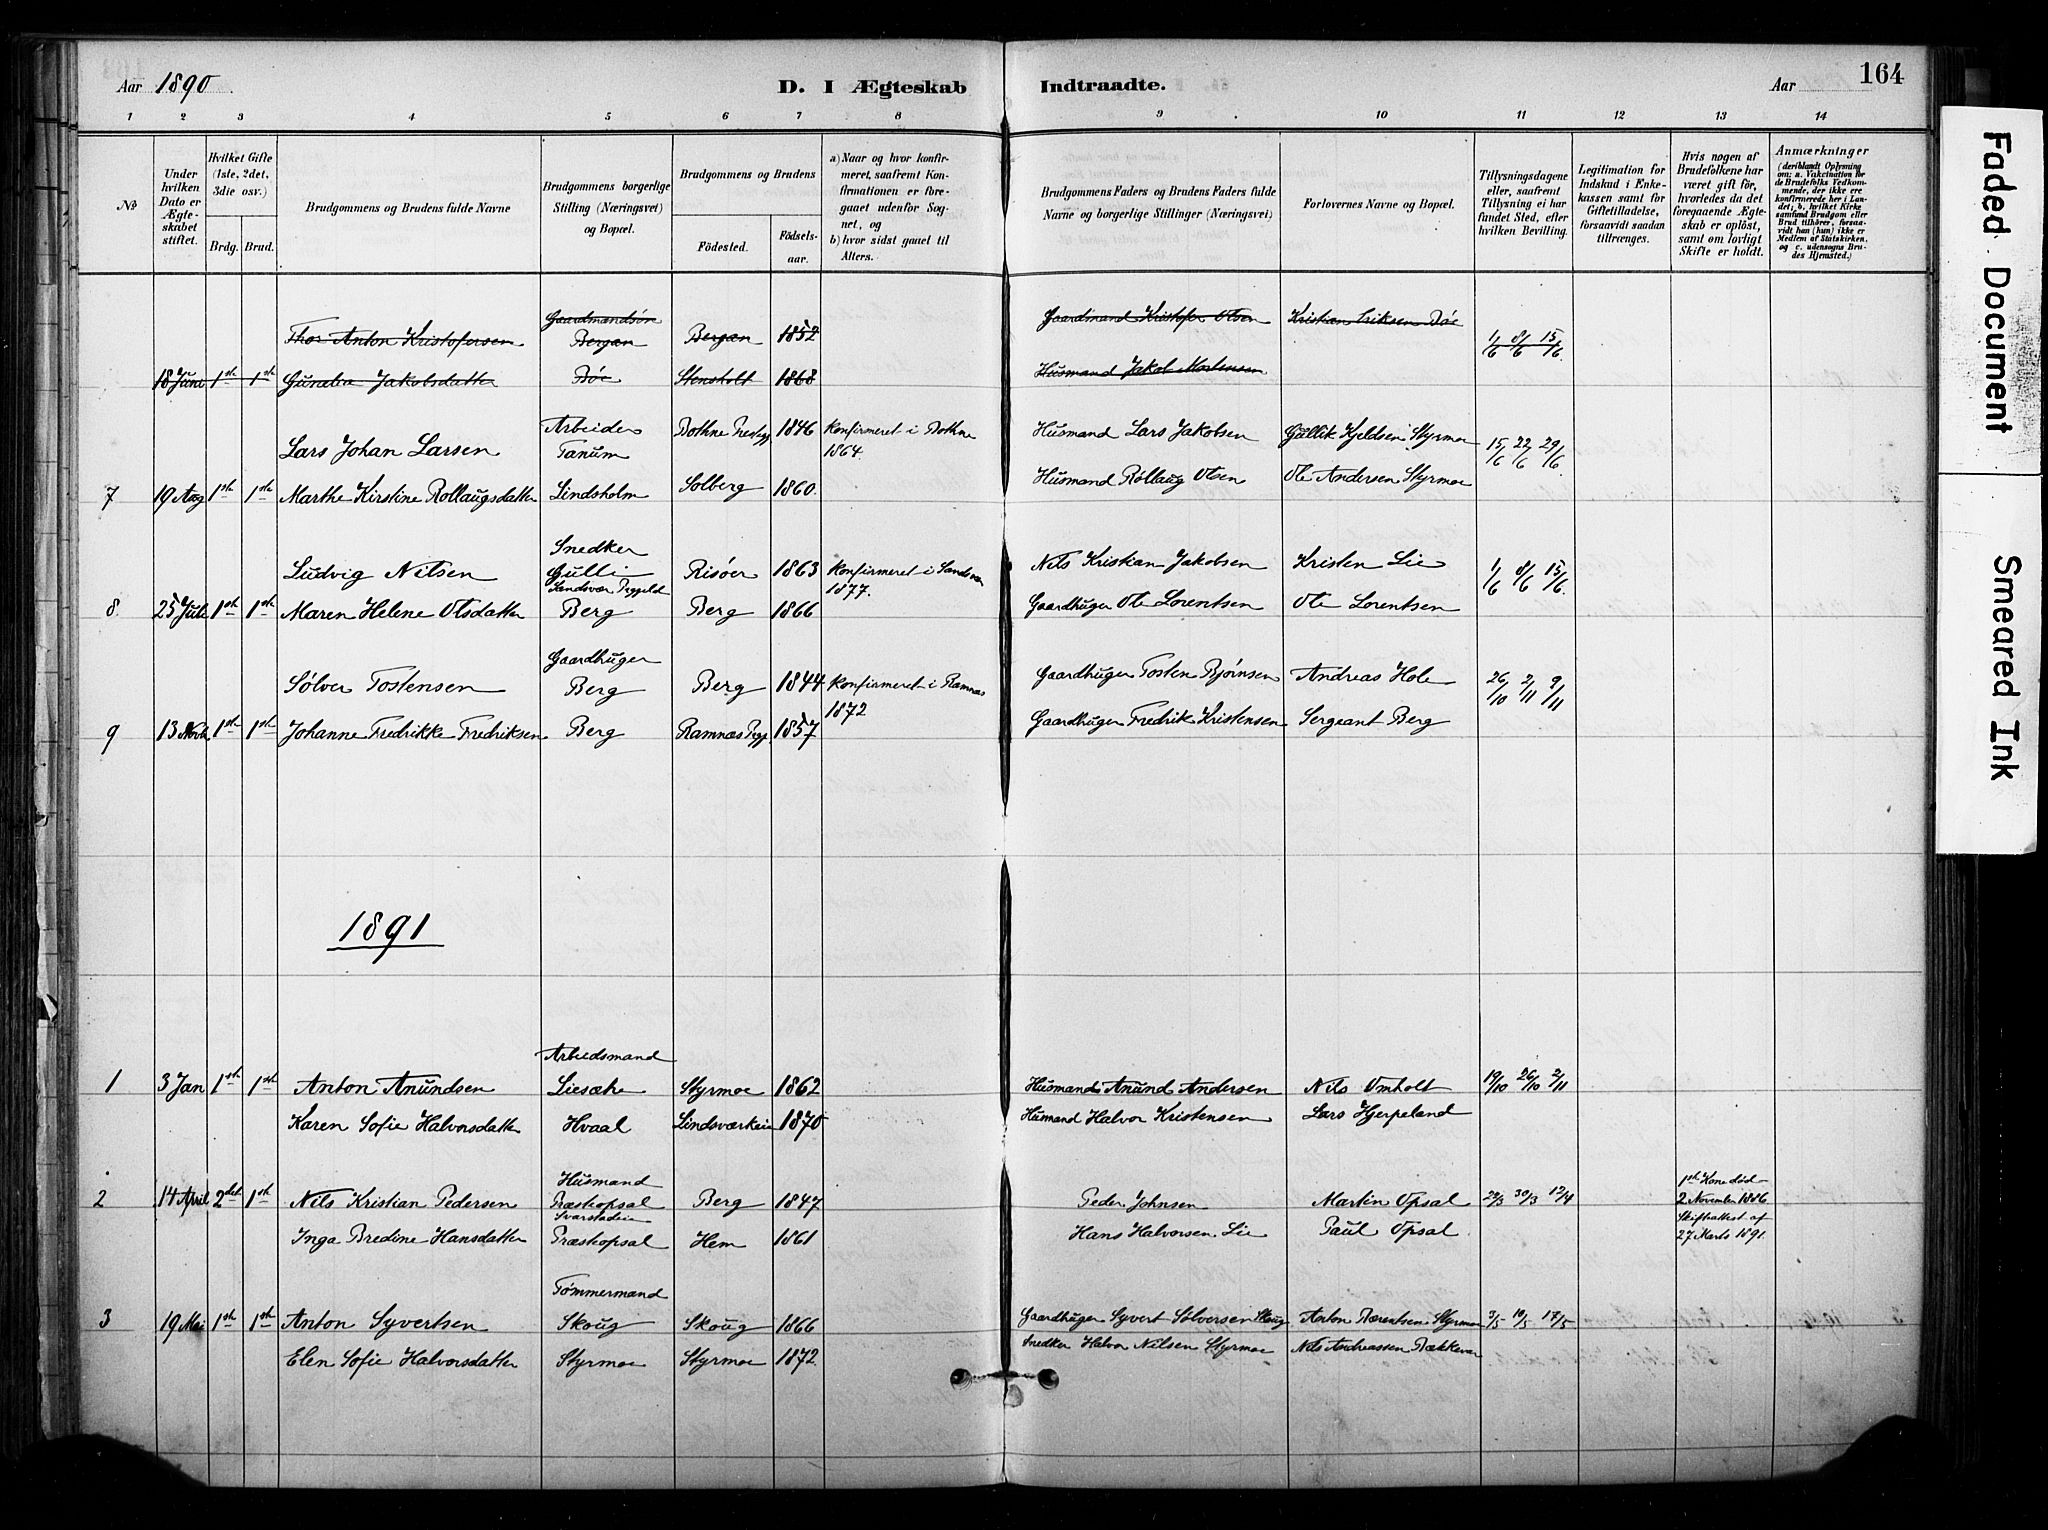 Aar 1890. D. I Ægteskab Indtraadte. Aar 164
1 2 3 4 5 6 7 8 9 10 11 12 13 14
№
Under hvilken Dato er Ægteskabet stiftet.
Hvilket Gifte (1ste, 2det, 3die osv.)
Brdg. Brud.
Brudgommens og Brudens fulde Navne
Brudgommens borgerlige Stilling (Næringsvei) og Bopæl.
Brudgommens og Brudens
Födested. Födsels-aar.
a) Naar og hvor konfirmeret, saafremt Konfirmationen er foregaaet udenfor Sognet, og
b) hvor sidst gaaet til Alters.
Brudgommens Faders og Brudens Faders fulde Navne og borgerlige Stillinger (Næringsvei)
Forlovernes Navne og Bopæl.
Tillysningsdagene eller, saafremt Tillysning ei har fundet Sted, efter hvilken Bevilling.
Legitimation for Indskud i Enkekassen samt for Giftetilladelse, forsaavidt saadan tiltrænges.
Hvis nogen af Brudefolkene har været gift för, hvorledes da det foregaaende Ægteskab er oplöst, samt om lovligt Skifte er holdt.
Anmærkninger
(deriblandt Oplysning om: a. Vakcination for de Brudefolks Vedkommende, der ikke ere konfirmerede her i Landet; b. hvilket Kirkesamfund Brudgom eller Brud tilhörer, forsaavidt han (hun) ikke er Medlem af Statskirken, og c. udensogns Brudes Hjemsted.)
Gaardmandsön Gaardmand Kristofer Olsen Kristian Eriksen Böe
Thor Anton Kristofersen Bergan Bergan 1852 1/6 8/6 15/6
18 Juni 1ste 1ste Gunelia Jakobsdatter Böe Stensholt 1868 Husmand Jakob Mortensen
Lars Johan Larsen Arbeider Tanum Bothne Prestegj 1846 Konfirmeret i Bothne 1864. Husmand Lars Jakobsen Gullik Kjeldsen Styrmoe 15/6 22/6 29/6
7 19 Aug 1ste 1ste Marthe Kirstine Rollaugsdatter Lindsholm Solberg 1860. Husmand Rollaug Olsen Ole Andersen Styrmoe
Snedker
Ludvig Nilsen Gulli Risöer 1863 Konfirmeret i Sandsvær 1877. Nils Kristian Jakobsen Kristen Lie 1/6 8/6 15/6.
Sandsvær Prgjeld
8. 25 Juli 1ste 1ste Maren Helene Olsdatter Berg Berg 1866 Gaardbuger Ole Lorentsen Ole Lorentsen
Gaardbuger
Sölver Tostensen Berg Berg 1844 Konfirmeret i Ramnæs 1872 Gaardbuger Tosten Bjørnsen Andreas Hole 26/10 2/11 9/11
9 13 Novbr 1ste 1ste Johanne Fredrikke Fredriksen Berg Ramnæs Prgj 1857 Gaardbuger Fredrik Kristensen Sergeant Berg
1891
Arbeidsmand
1 3 Jan 1ste 1ste Anton Anundsen Liesæhe Styrmoe 1862 Husmand Anund Andersen Nils Omholt 19/10 26/10 2/11
Karen Sofie Halvorsdatter Hvaal Lindsværkeie 1870 Husmand Halvor Kristensen Lars Hjerpeland
Husmand
2 14 April 2det 1ste Nils Kristian Pedersen Præstopsal Berg 1847 Peder Johnsen Martin Opsal 29/3 30/3 12/4 1ste Kone död 2 November 1886
Svarstadeie
Inga Bredine Hansdatter Præstopsal Hem 1861 Hans Halvorsen Lie Paul Opsal Skifteattest af 27 Marts 1891.
Tömmermand
3 19 Mai 1ste 1ste Anton Syvertsen Skoug Skoug 1866 Gaardbuger Syvert Sölversen Skoug Anton Bærentsen Styrmoe 3/5 10/5 17/5
Elen Sofie Halvorsdatter Styrmoe Styrmoe 1872. Snedker Halvor Nilsen Styrmoe Nils Andreassen Bækkevar
Faded Document
Smeared Ink